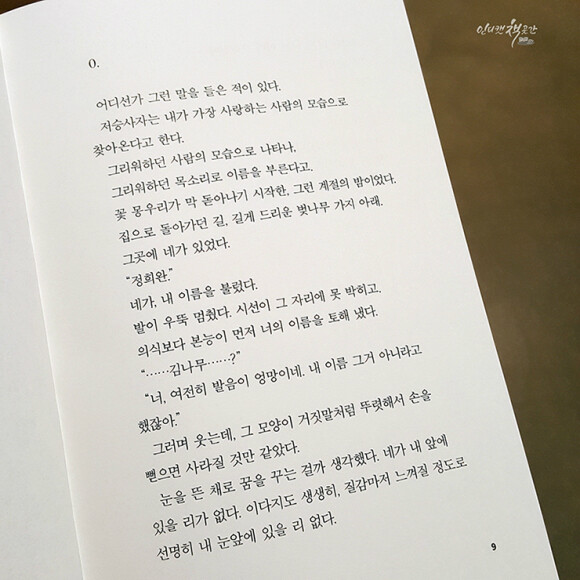 인디캣책곳간
0.
어디선가 그런 말을 들은 적이 있다.
저승사자는 내가 가장 사랑하는 사람의 모습으로
찾아온다고 한다.
그리워하던 사람의 모습으로 나타나,
그리워하던 목소리로 이름을 부른다고.
꽃 몽우리가 막 돋아나기 시작한, 그런 계절의 밤이었다.
집으로 돌아가던 길, 길게 드리운 벚나무 가지 아래.
그곳에 네가 있었다.
“정희완.”
네가, 내 이름을 불렀다.
발이 우뚝 멈췄다. 시선이 그 자리에 못 박히고.
의식보다 본능이 먼저 너의 이름을 토해 냈다.
“……김나무……?”
“너, 여전히 발음이 엉망이네. 내 이름 그거 아니라고
했잖아.”
그러며 웃는데, 그 모양이 거짓말처럼 뚜렷해서 손을
뻗으면 사라질 것만 같았다.
눈을 뜬 채로 꿈을 꾸는 걸까 생각했다. 네가 내 앞에
있을 리가 없다. 이다지도 생생히, 질감마저 느껴질 정도로
선명히 내 눈앞에 있을 리 없다.
9